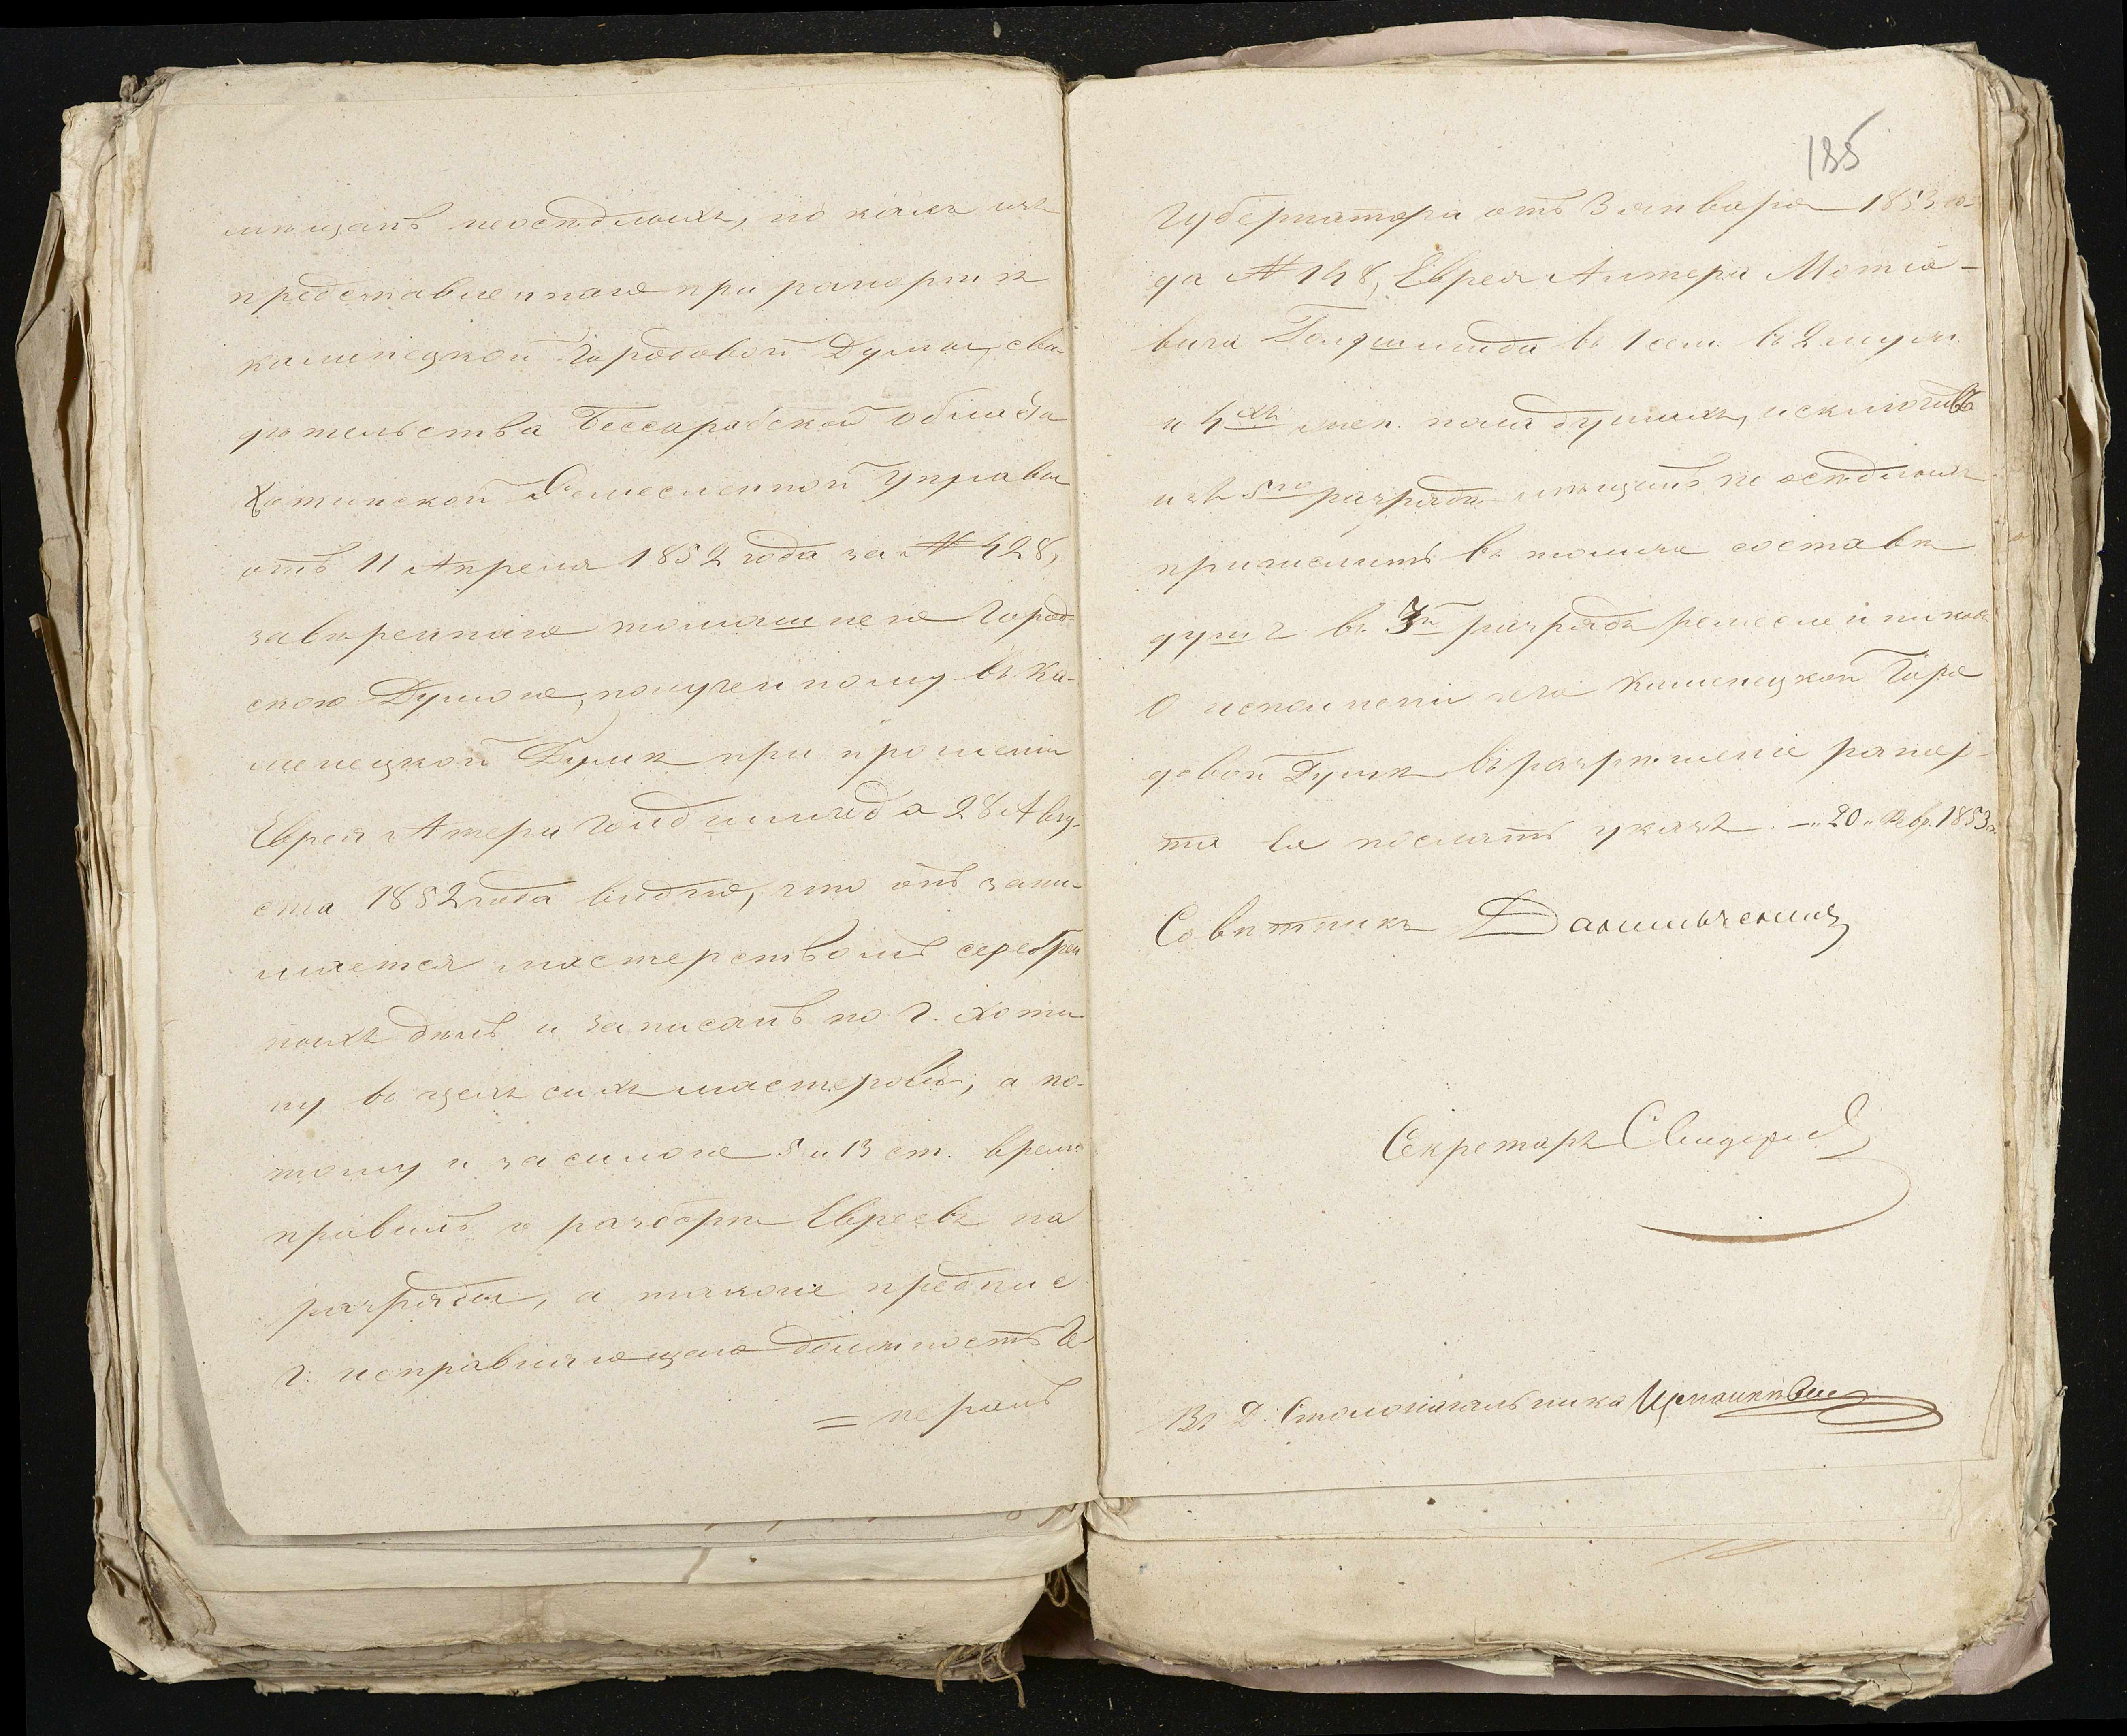 мѣщанъ неосѣдлыхъ, но какъ изъ
представленнаго при рапортѣ
каменецкой Городовой Думы, сви-
дѣтельства Бессарабской области
Хотинской Ремесленной Управы
отъ 11 Апреля 1852 года за № 428,
завѣреннаго томошнею Город-
скою Думою, полученному въ Ка-
менецкой Думѣ при прошеніи
Еврея Антера Голдшмида 28 Авгу-
ста 1852 года видно, что онъ зани-
мается мастерствомъ серебрен
ныхъ дѣлъ и записанъ по г. Хоти
ну въ цехъ сихъ мастеровъ, а по-
тому и за силою 5 и 13 ст. врем.
правилъ о разборѣ Евреевъ на
разряды, а также предпис
г. исправляющаго должность Гу
= бернат
185
Губернатора отъ 3 января 1853 го-
да № 148, Еврея Антера Мотіо-
вича Голдшмида въ 1 сем. въ 2 муж.
и 4хъ жен. пола душахъ, исключивъ
изъ 5го разряда мѣщанъ не осѣдлыхъ
причислить въ томъ же составѣ
душъ въ 3й разрядъ ремесленниковъ
О исполненіи чего Каменецкой Горо
довой Думѣ въ разрѣшеніе рапор-
та Ея послать указъ. — „20„ Февр. 1853 г.
Совѣтникъ
Секретарь
В. Д. Столоначальника